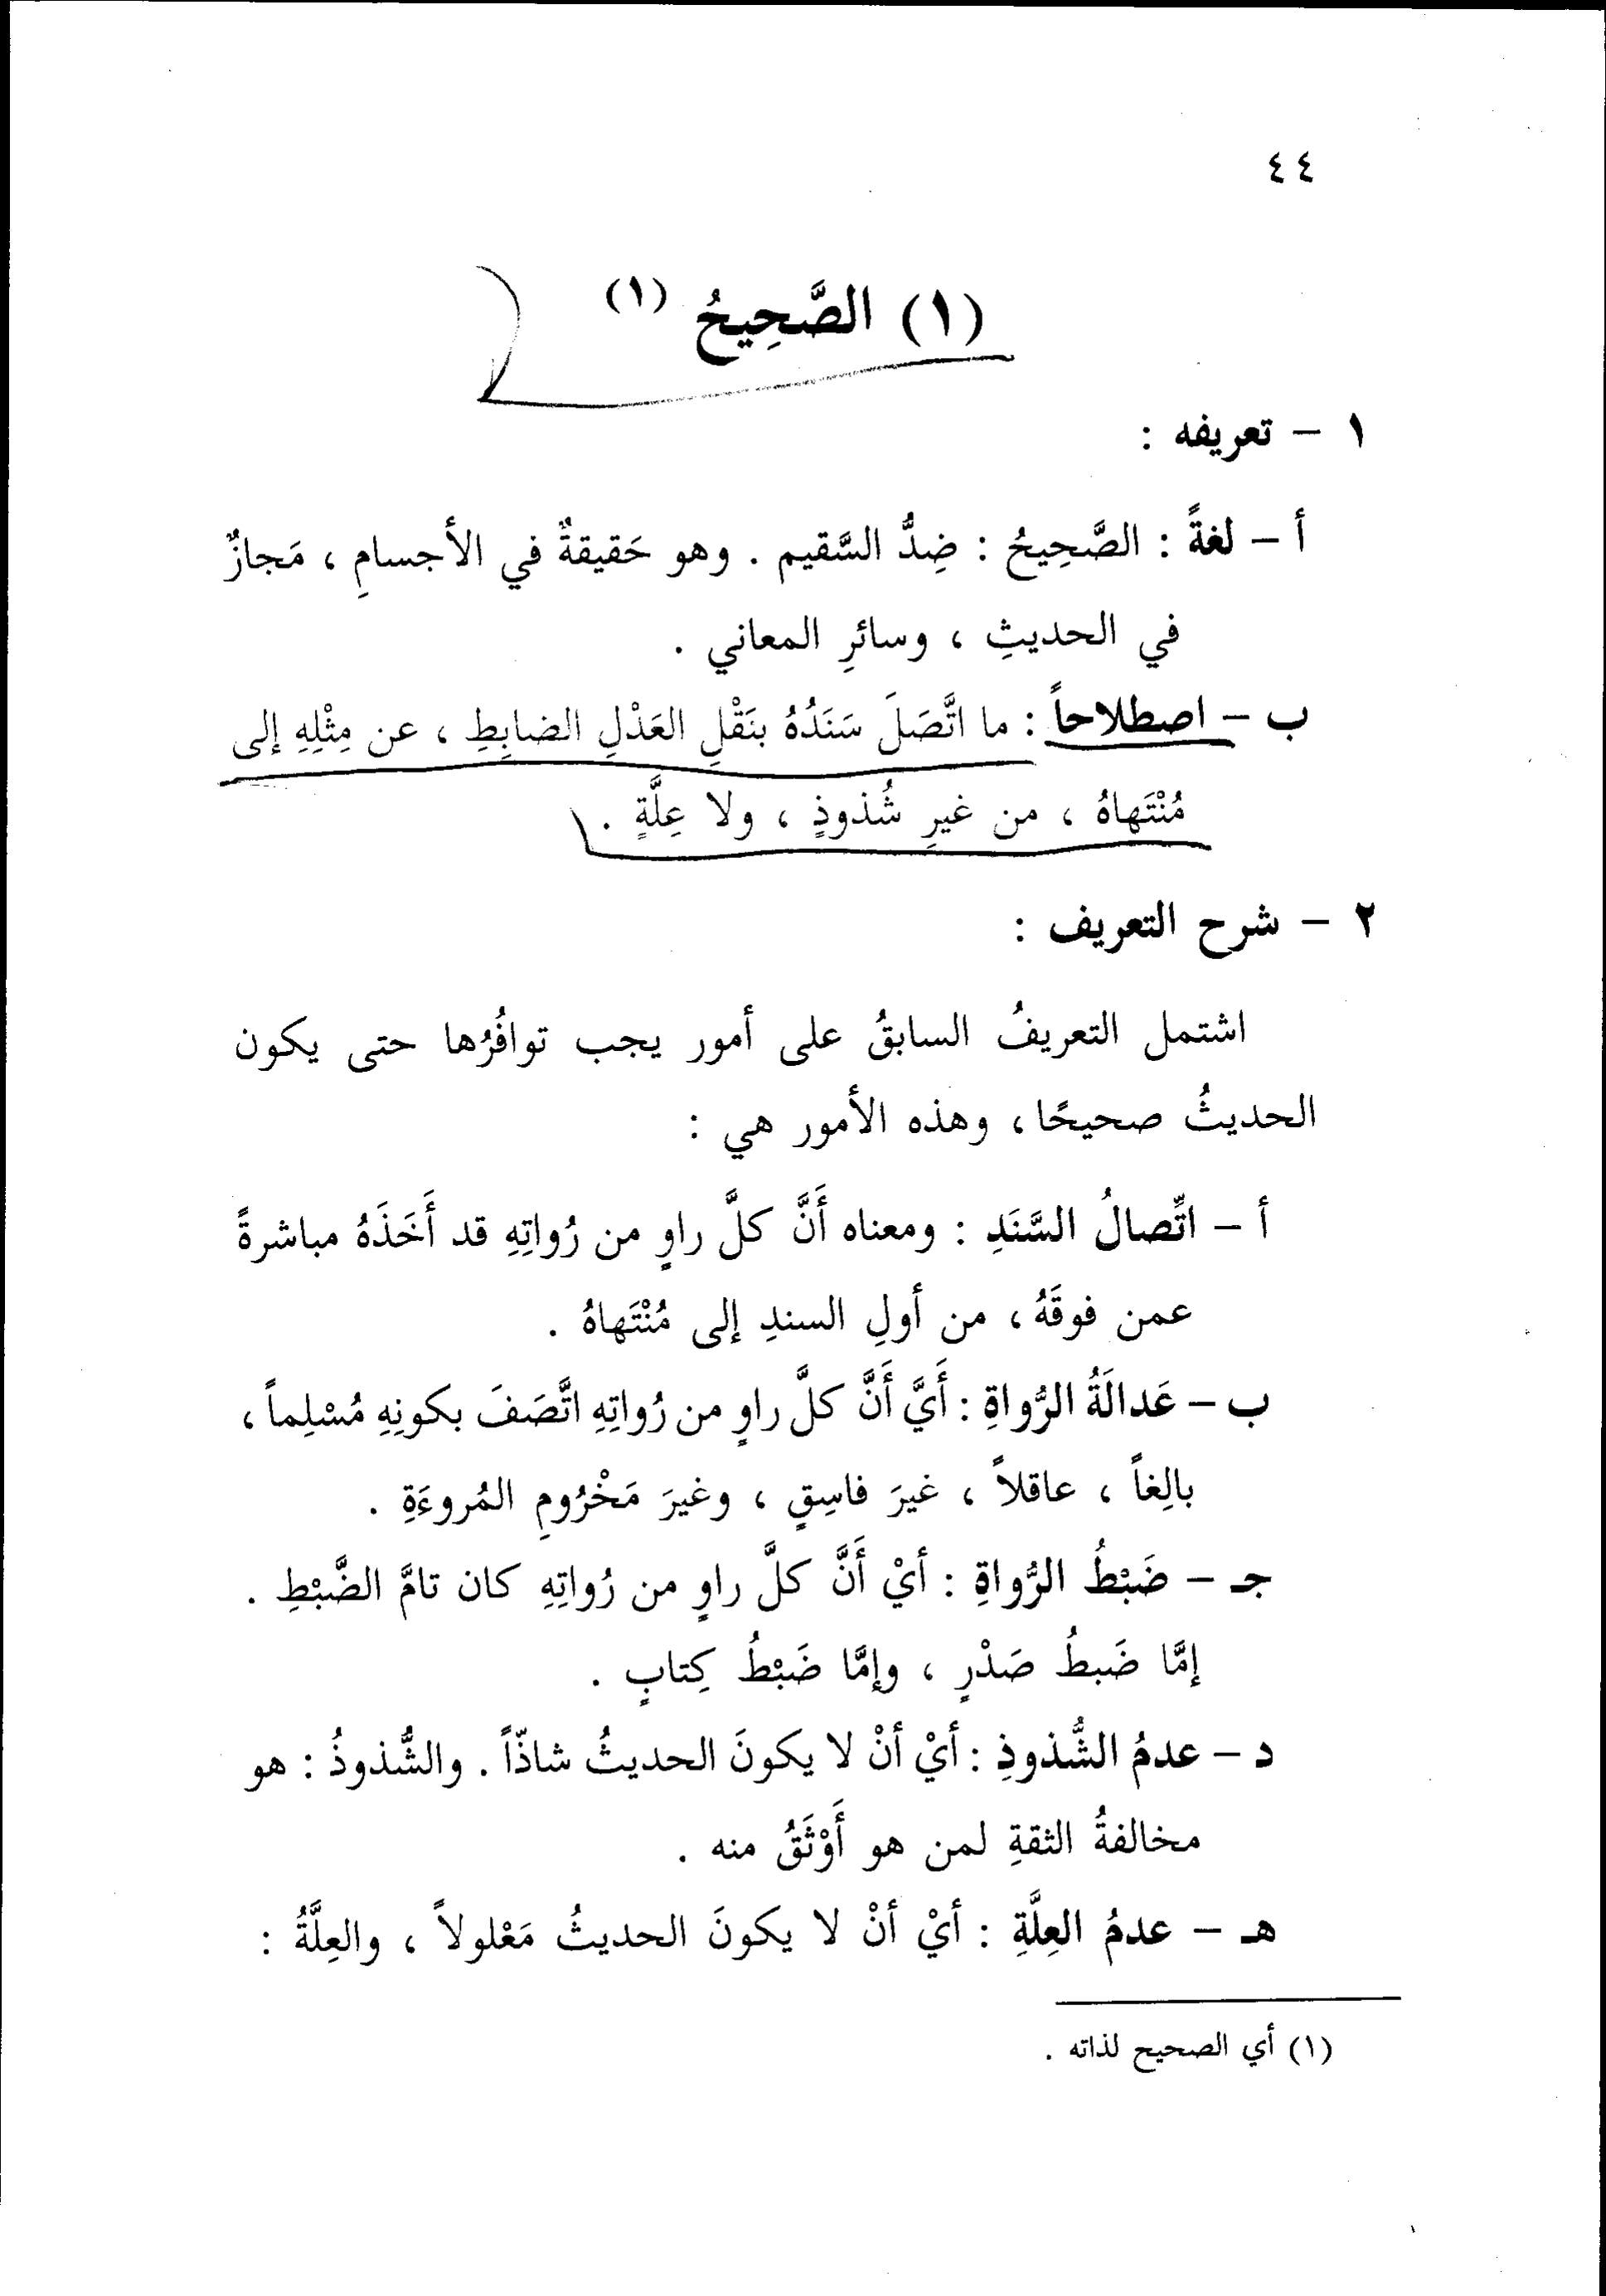 ٤٤
(١) الصَّحِيحُ (١)
١ – تعريفه :
أ – لغةً : الصَّحِيحُ : ضِدُّ السَّقيم . وهو حَقيقةٌ في الأجسامِ ، مَجازٌ
في الحديثِ ، وسائرِ المعاني .
ب – اصطلاحاً : ما اتَّصَلَ سَنَدُهُ بنَقْلِ العَدْلِ الضابِطِ ، عن مِثْلِهِ إلى
مُنْتَهاهُ ، من غيرِ شُذوذٍ ، ولا عِلَّةٍ .
٢ – شرح التعريف :
اشتمل التعريفُ السابقُ على أمور يجب توافُرُها حتى يكون
الحديثُ صحيحًا ، وهذه الأمور هي :
أ – اتِّصالُ السَّنَدِ : ومعناه أَنَّ كلَّ راوٍ من رُواتِهِ قد أَخَذَهُ مباشرةً
عمن فوقَهُ ، من أولِ السندِ إلى مُنْتَهاهُ .
ب – عَدالَةُ الرُّواةِ : أَيَّ أَنَّ كلَّ راوٍ من رُواتِهِ اتَّصَفَ بكونِهِ مُسْلِماً ،
بالِغاً ، عاقلاً ، غيرَ فاسِقٍ ، وغيرَ مَخْرُومِ المُروءَةِ .
جـ – ضَبْطُ الرُّواةِ : أيْ أَنَّ كلَّ راوٍ من رُواتِهِ كان تامَّ الضَّبْطِ .
إمَّا ضَبطُ صَدْرٍ ، وإمَّا ضَبْطُ كِتابٍ .
د – عدمُ الشُّذوذِ : أيْ أنْ لا يكونَ الحديثُ شاذّاً . والشُّذوذُ : هو
مخالفةُ الثقةِ لمن هو أَوْثَقُ منه .
هـ – عدمُ العِلَّةِ : أيْ أنْ لا يكونَ الحديثُ مَعْلولاً ، والعِلَّةُ :
(١) أي الصحيح لذاته .